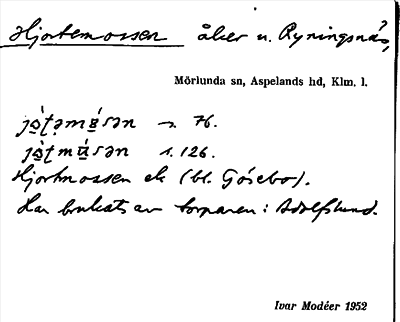 Hjortemossen åker u. Ryningsnäs,
Mörlunda sn, Aspelands hd, Klm. l.
s. 76.
s. 126.
Hjortmossen ek (bl. Gösebo).
Har brukats av torparen i Adolfslund.
Ivar Modéer 1952